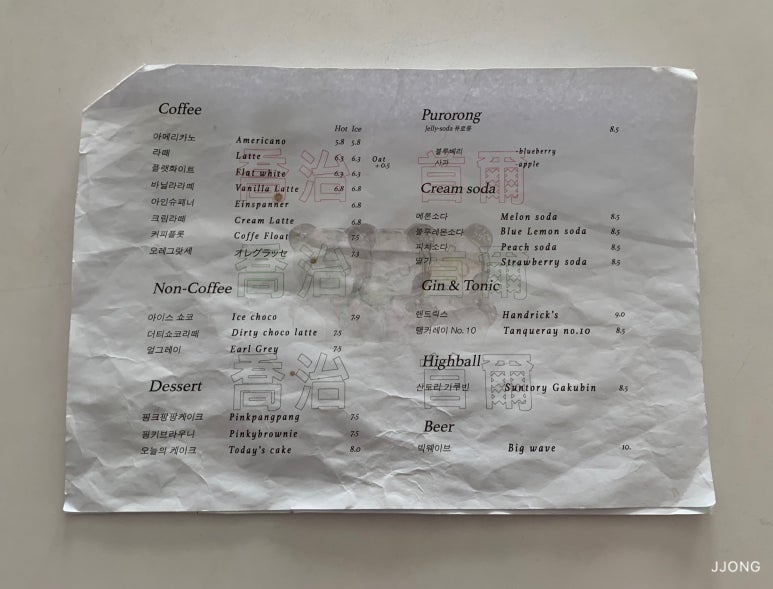 Coffee
Hot Ice
아메리카노 Americano 5.8 5.8
라떼 Latte 6.3 6.3 Oat +0.5
플랫화이트 Flat white 6.3 6.3
바닐라라떼 Vanilla Latte 6.8 6.8
아인슈패너 Einspanner 6.8
크림라떼 Cream Latte 6.8
커피플롯 Coffe Float 7.5
오레그랏세 オレグラッセ 7.3
Non-Coffee
아이스 쵸코 Ice choco 7.9
더티쵸코라떼 Dirty choco latte 7.5
얼그레이 Earl Grey 7.5
Dessert
핑크팡팡케이크 Pinkpangpang 7.5
핑키브라우니 Pinkybrownie 7.5
오늘의 케이크 Today's cake 8.0
Purorong
Jelly-soda 퓨로롱 8.5
블루베리 -blueberry
사과 -apple
Cream soda
메론소다 Melon soda 8.5
블루레몬소다 Blue Lemon soda 8.5
피치소다 Peach soda 8.5
딸기 Strawberry soda 8.5
Gin & Tonic
핸드릭스 Handrick's 9.0
탱커레이 No.10 Tanqueray no.10 8.5
Highball
산토리 가쿠빈 Suntory Gakubin 8.5
Beer
빅웨이브 Big wave 10.
喬治 首爾
喬治 首爾
喬治 首爾
JJONG